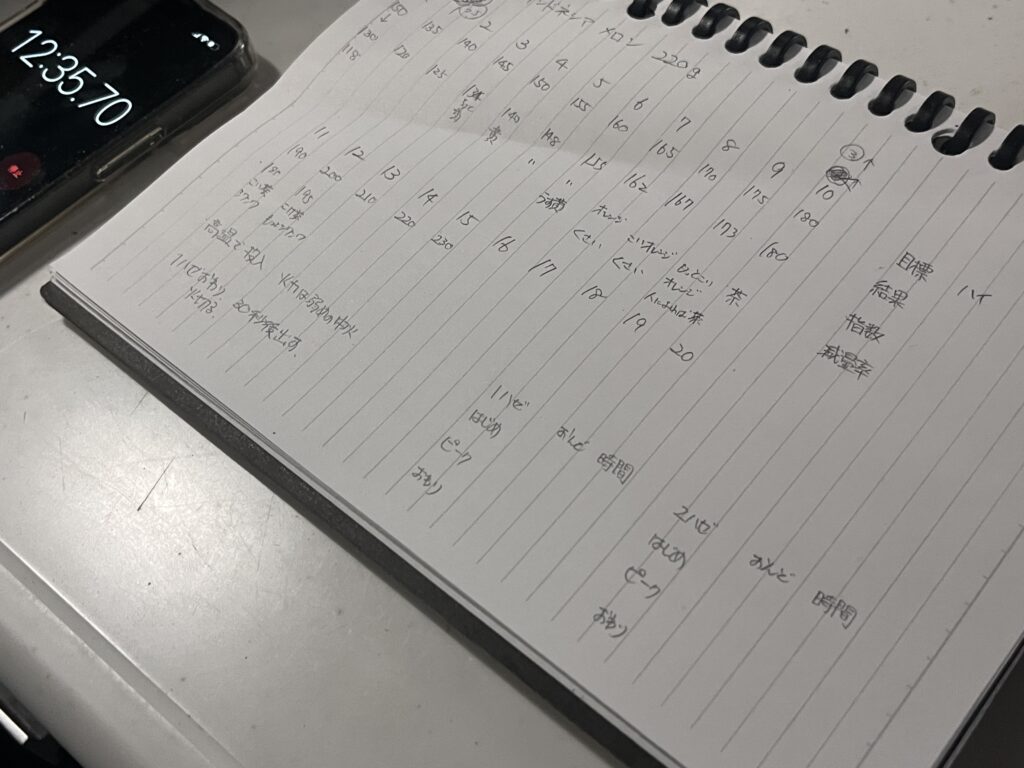 12:35.70
メロン 220g
2 3 4 5 6 7 8 9 10
150 135 140 145 150 155 160 165 170 175 180
130
118 120 125 140 148 155 162 167 173 180
黄 〃 〃 オレンジ こいオレンジ 茶
くさい くさい オレンジ
11 12 13 14 15 16 17 18 19 20
190 200 210 220 230
195
こげ茶
高温で投入 火力は弱めの中火
1ハゼおわり 30秒後出す、
火切る
目標 ハイ
結果
指数
減量率
1ハゼ おんど 時間
はじめ
ピーク
おわり
2ハゼ おんど 時間
はじめ
ピーク
おわり